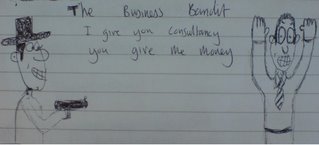 The Business Bandit
I give you consultancy
you give me money